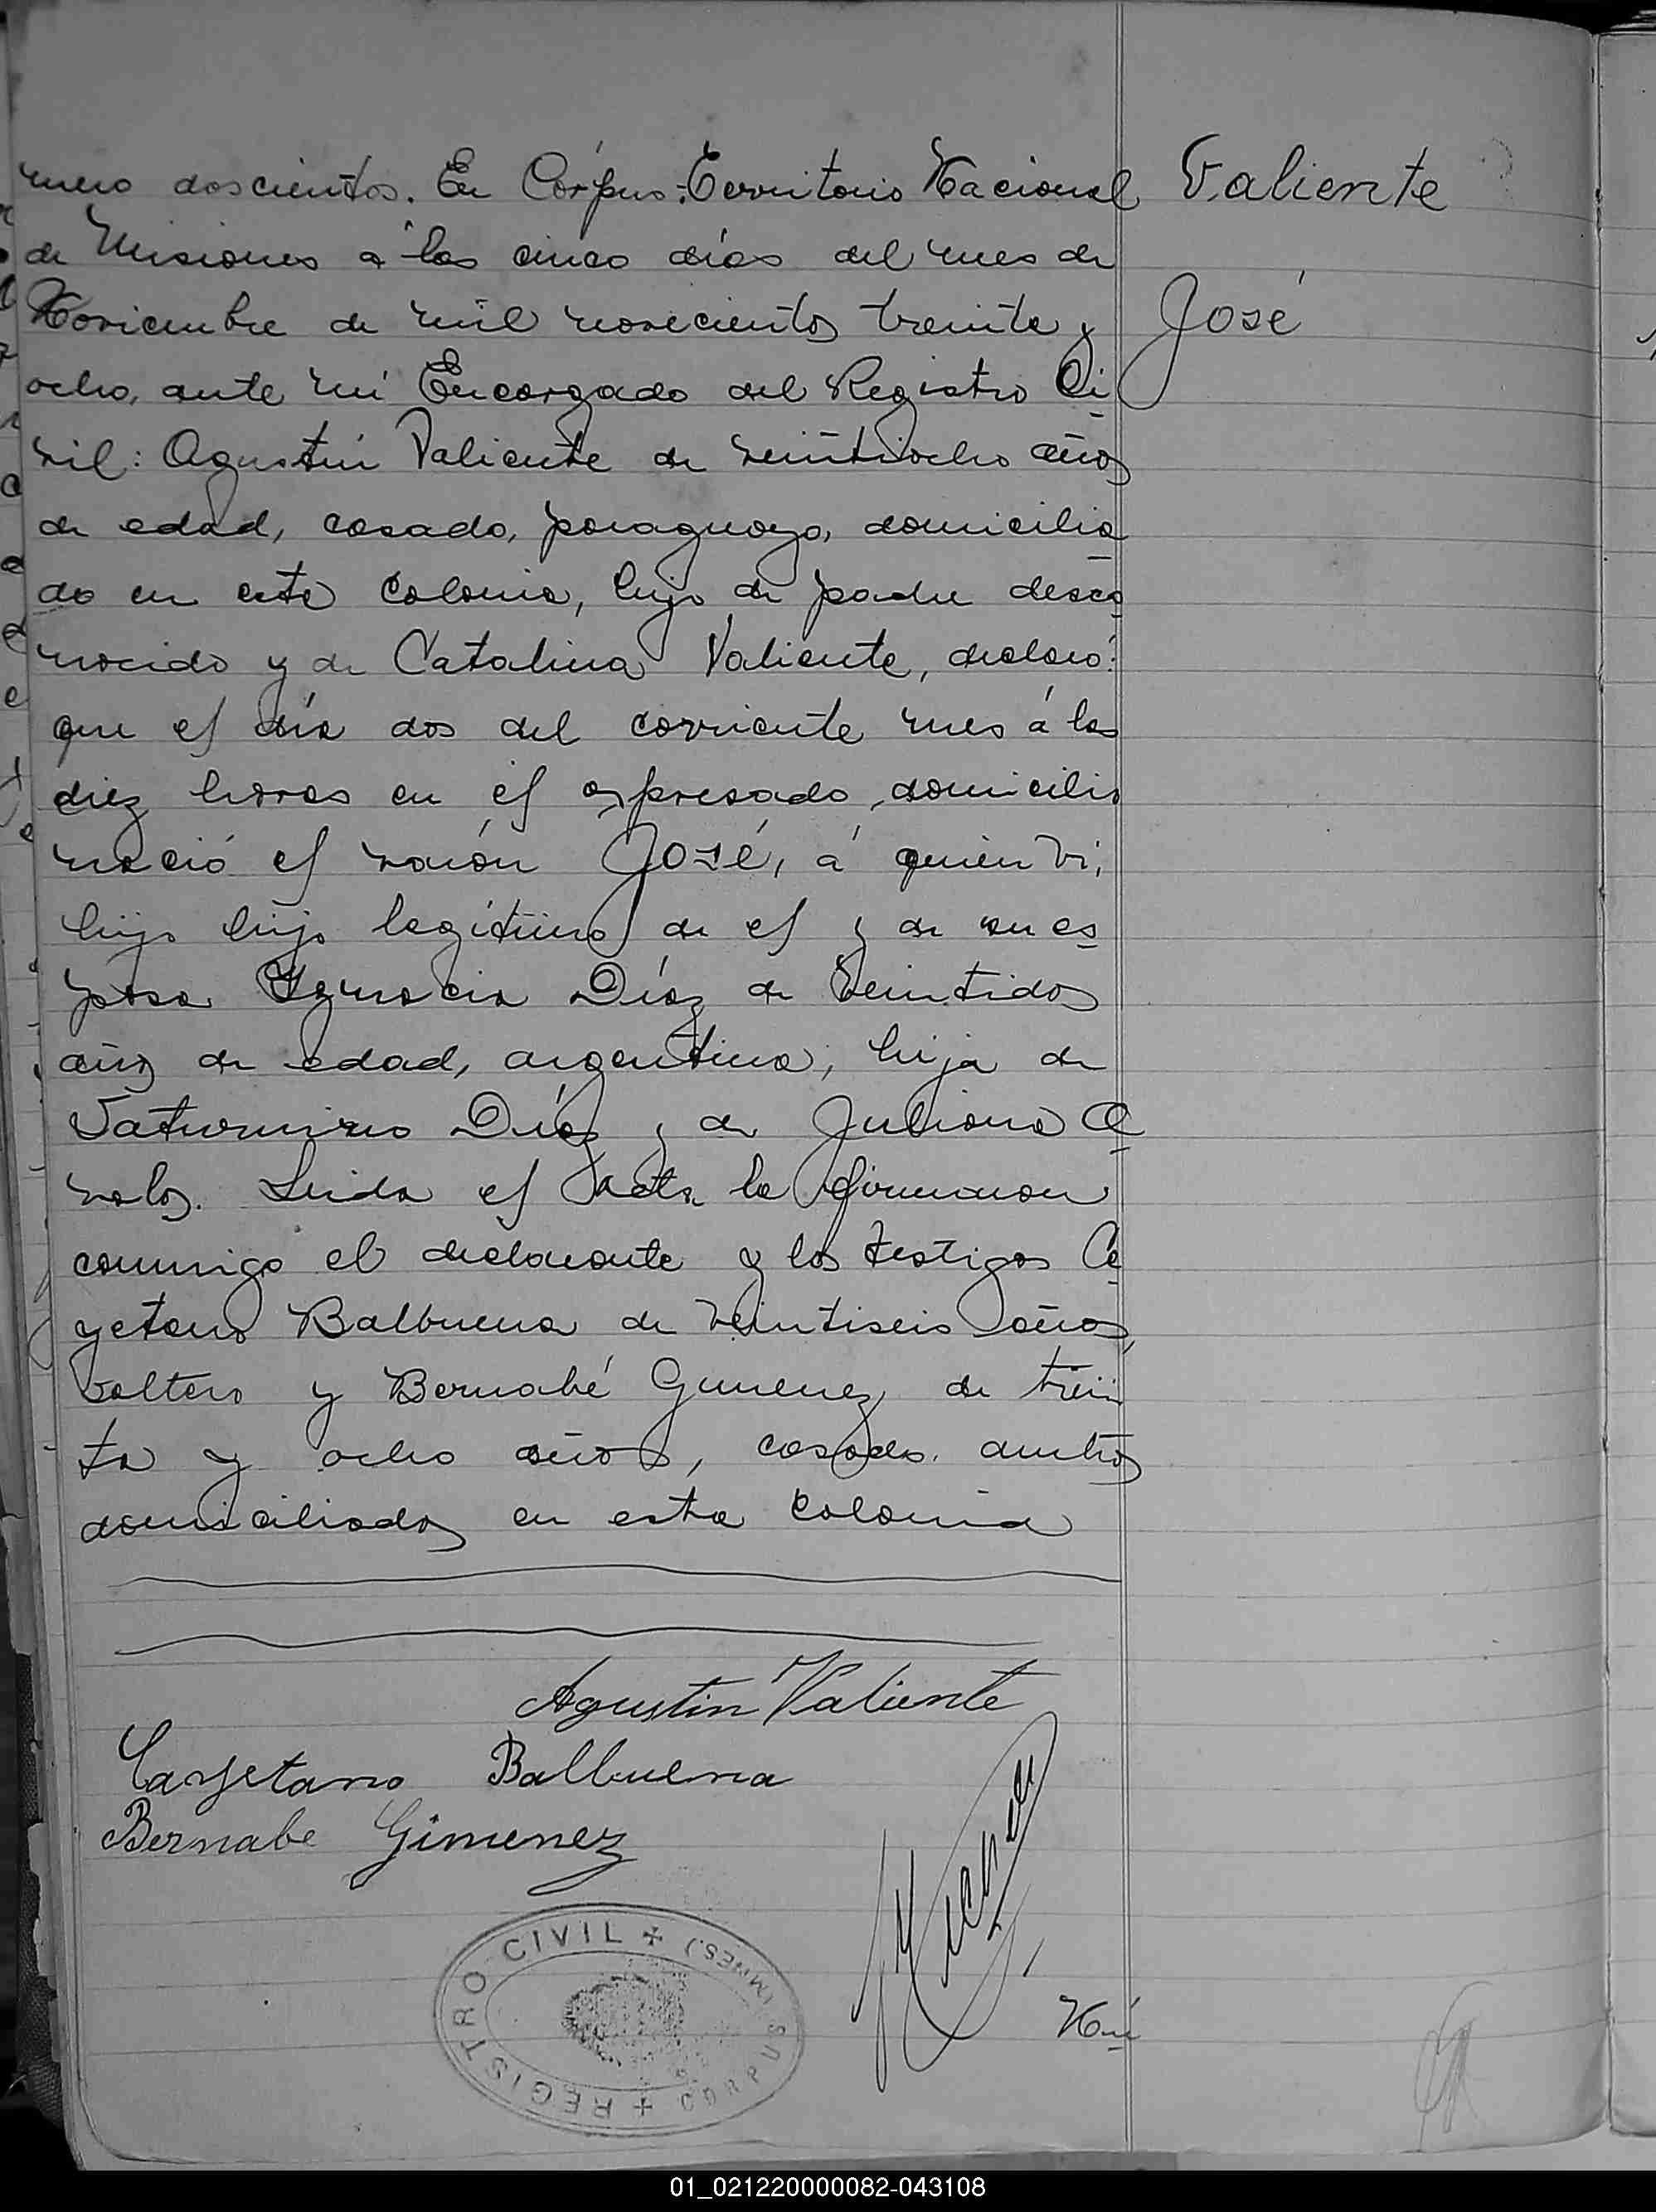 mero doscientos. En Córpus, Territorio Nacional
Valiente
de Misiones á los cinco días del mes de
Noviembre de mil novecientos treinta y
José
ocho, ante mí Encargado del Registro Ci
vil: Agustín Valiente de veintiocho años
de edad, casado, paraguayo, domicilia
do en esta Colonia, hijo de padre desco
nocido y de Catalina Valiente, declaró:
que el día dos del corriente mes á las
diez horas en el expresado domicilio
nació el varón José, á quien vi,
hijo hijo legítimo de el y de su es
posa Ignacia Díaz de veintidos
años de edad, argentina, hija de
Saturnino Díaz y de Juliana A
valos. Leida el Acta la firmaron
conmigo el declarante y los testigos Ca
yetano Balbuena de veintiseis años,
soltero y Bernabé Gimenez de trein
ta y ocho años, casado, ambos
domiciliados en esta Colonia
Agustin Valiente
Cayetano Balbuena
Bernabe Gimenez
REGISTRO CIVIL
CORPUS (MNES.)
Nú
01_021220000082-043108